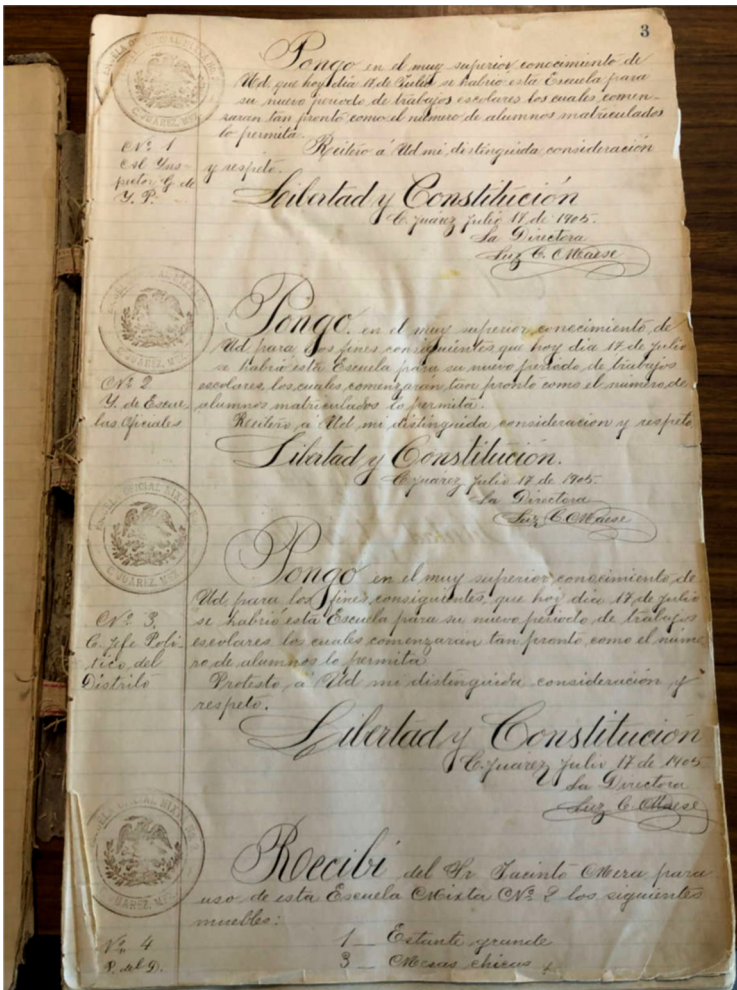 3
Pongo en el muy superior conocimiento de
Ud. que hoy día 17 de Julio se habrió esta Escuela para
su nuevo periodo de trabajos escolares los cuales comen-
zaran tan pronto como el número de alumnos matriculados
lo permita.
Reitero á Ud mi distinguida consideración
y respeto.
Nº 1
Al Ins-
pector G. de
Y. P.
Libertad y Constitución
C. Juárez Julio 17 de 1905.
La Directora
Luz C. Maese
C. JUAREZ, MEX.
Pongo en el muy superior conocimiento de
Ud para los fines consiguientes que hoy día 17 de julio
se habrió esta Escuela para su nuevo periodo de trabajos
escolares, los cuales comenzaran tan pronto como el número de
alumnos matriculados lo permita.
Reitero á Ud mi distinguida consideracion y respeto
Nº 2
Y. de Escue
las Oficiales
Libertad y Constitución.
C. Juarez Julio 17 de 1905.
La Directora
Luz C. Maese
ESCUELA OFICIAL MIXTA Nº 2
C. JUAREZ, MEX.
Pongo en el muy superior conocimiento de
Ud. para los fines consiguientes, que hoy día 17 de julio
se habrió esta Escuela para su nuevo periodo de trabajos
escolares, los cuales comenzaran tan pronto como el núme-
ro de alumnos lo permita
Protesto á Ud mi distinguida consideración y
respeto.
Nº 3.
C. Jefe Polí
tico del
Distrito
Libertad y Constitución
C. Juarez Julio 17 de 1905
La Directora
Luz C. Maese
ESCUELA OFICIAL MIXTA Nº 2
C. JUAREZ, MEX.
Recibí del Sr. Jacinto Mera para
uso de esta Escuela Mixta Nº 2 los siguientes
muebles:
Nº 4
P. del D.
1 — Estante grande
3 — Mesas chicas